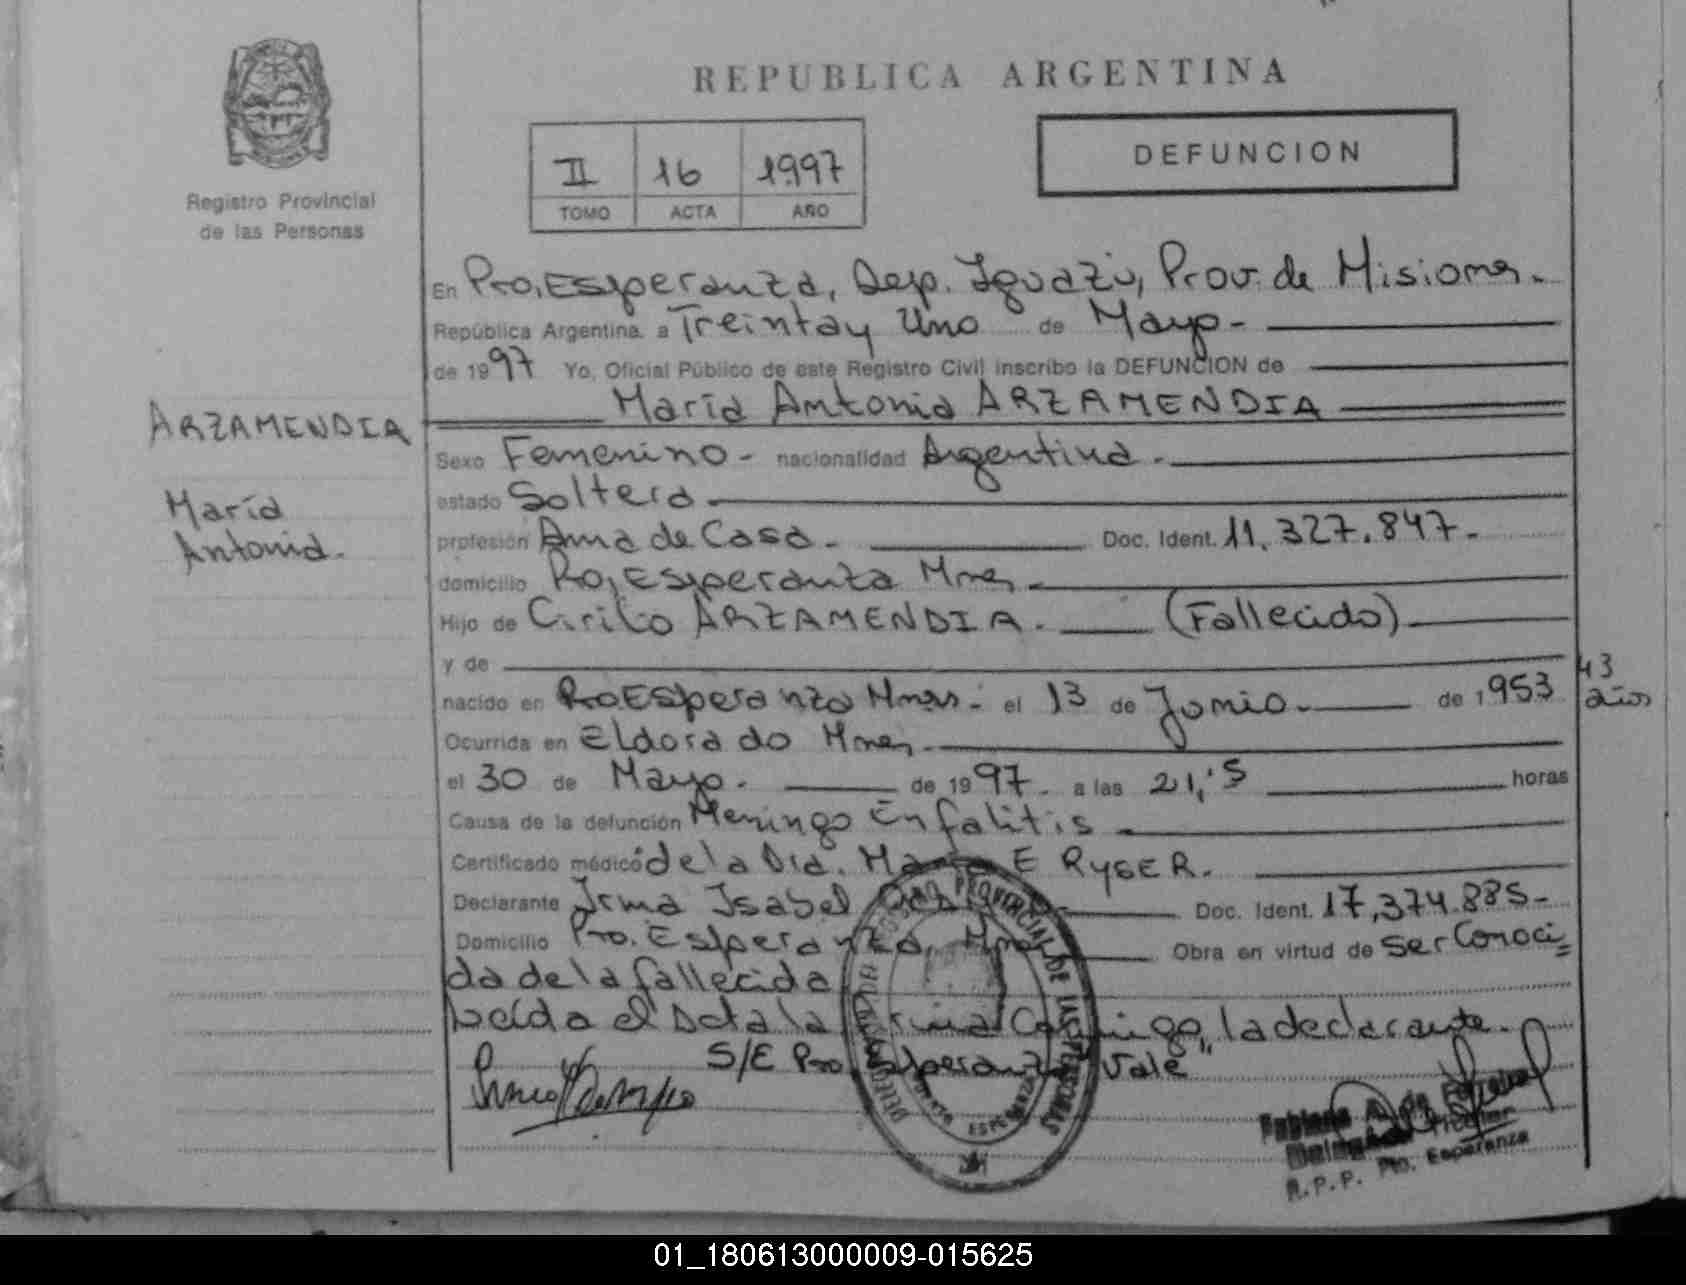 REPUBLICA ARGENTINA
Registro Provincial
de las Personas
II 16 1997
TOMO ACTA AÑO
DEFUNCION
En Pto. Esperanza, Dep. Iguazú, Prov. de Misiones.
República Argentina. a Treinta y Uno de Mayo-
de 1997 Yo, Oficial Público de este Registro Civil inscribo la DEFUNCION de
María Antonia ARZAMENDIA
ARZAMENDIA
María
Antonia.
Sexo Femenino - nacionalidad Argentina.
estado Soltera
profesión Ama de Casa. Doc. Ident. 11.327.847.
domicilio Pto, Esperanza Mnes.
Hijo de Cirilo ARZAMENDIA. (Fallecido)
y de
nacido en Pto Esperanza Mnes. el 13 de Junio. de 1953
43
años
Ocurrida en Eldorado Mnes.
el 30 de Mayo. de 1997. a las 21,'5 horas
Causa de la defunción Meningo Enfalitis
Certificado médico de la Dra. E RYSER.
Declarante Irma Isabel Doc. Ident. 17,374.885-
Domicilio Pto. Esperanza, Obra en virtud de ser Conoci=
da de la fallecida
Leída el Acta la firma Conmigo,, la declarante.
S/E Pto Esperanza Vale
PROVINCIAL DE LAS PERSONAS
R.P.P. Pto. Esperanza
01_180613000009-015625